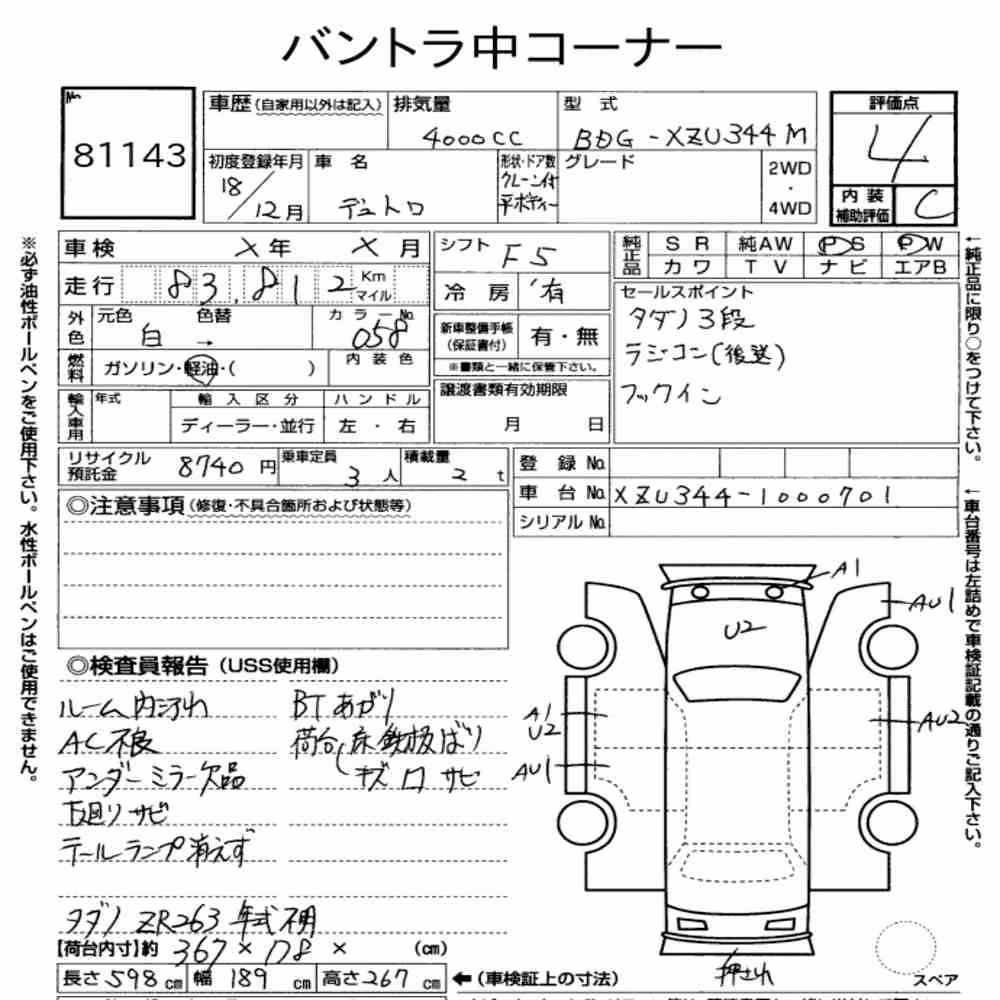 バントラ中コーナー
No. 81143
車歴(自家用以外は記入)
排気量 4000CC
型式 BDG-XZU344M
評価点 4
内装補助評価 C
初度登録年月 18/12月
車名 デュトロ
形状・ドア数 クレーン付 平ボディー
グレード
2WD・4WD
車検 X年 X月
走行 83,812 Km マイル
外色 元色 白 色替 → カラーNo. 058
燃料 ガソリン・軽油・( ) 内装色
輸入車用 年式 輸入区分 ディーラー・並行 ハンドル 左・右
シフト F5
冷房 有
新車整備手帳(保証書付) 有・無
※書類と一緒に保管下さい。
譲渡書類有効期限 月 日
純正品 SR 純AW PS PW
カワ TV ナビ エアB
セールスポイント
タダノ3段
ラジコン(後送)
フックイン
リサイクル預託金 8740円
乗車定員 3人
積載量 2t
登録No.
車台No. XZU344-1000701
シリアルNo.
◎注意事項(修復・不具合箇所および状態等)
◎検査員報告(USS使用欄)
ルーム内汚れ
AC不良
アンダーミラー欠品
下廻りサビ
テールランプ消えず
タダノ ZR263 年式不明
BTあがり
荷台(床鉄板ばり
キズ ロ サビ
A1
AU1
U2
A1
U2
AU2
AU1
押され
スペア
【荷台内寸】約 367×178× (cm)
長さ598cm 幅189cm 高さ267cm
←(車検証上の寸法)
※必ず油性ボールペンをご使用下さい。水性ボールペンはご使用できません。
←純正品に限り○をつけて下さい。
←車台番号は左詰めで車検証記載の通りご記入下さい。